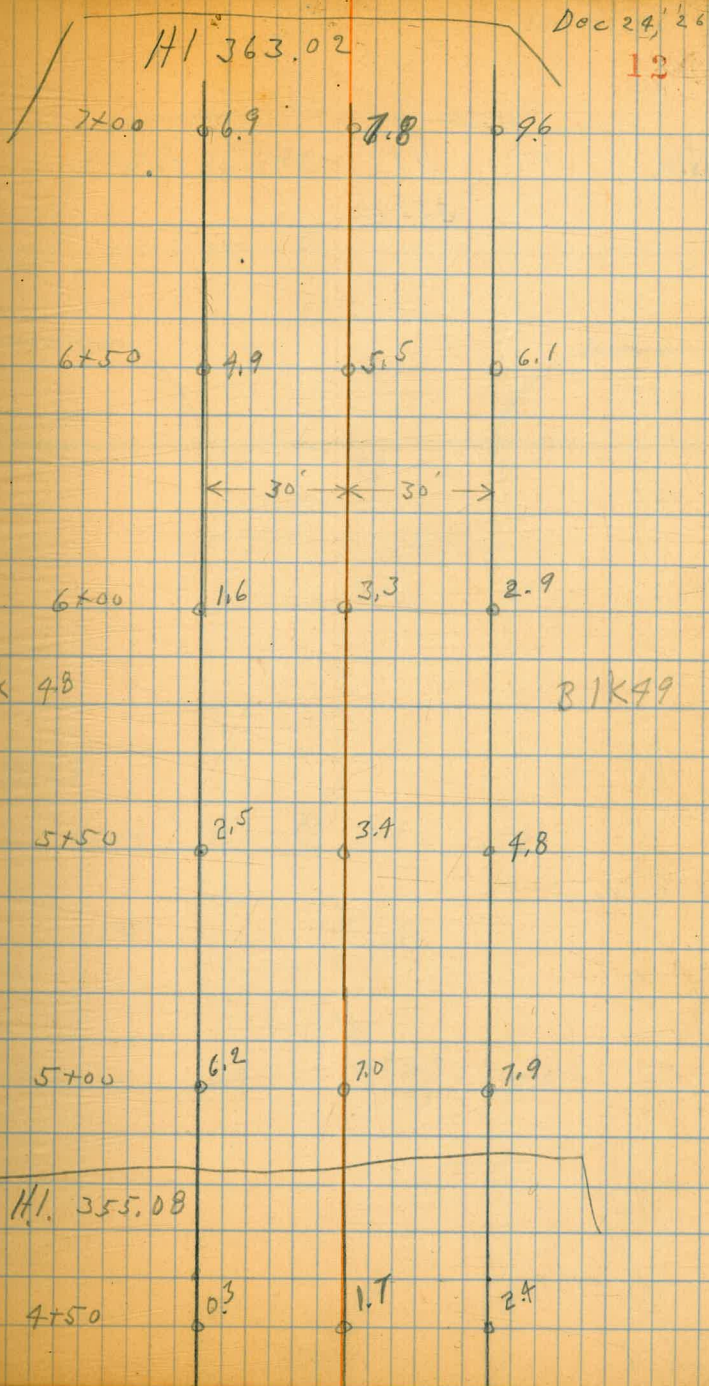 Dec 24, '26
HI 363.02
12
7+00 6.9 7.8 9.6
6+50 4.9 5.5 6.1
30' 30'
6+00 1.6 3.3 2.9
48 Blk 49
5+50 2.5 3.4 4.8
5+00 6.2 7.0 7.9
H.I. 355.08
4+50 0.3 1.7 2.4